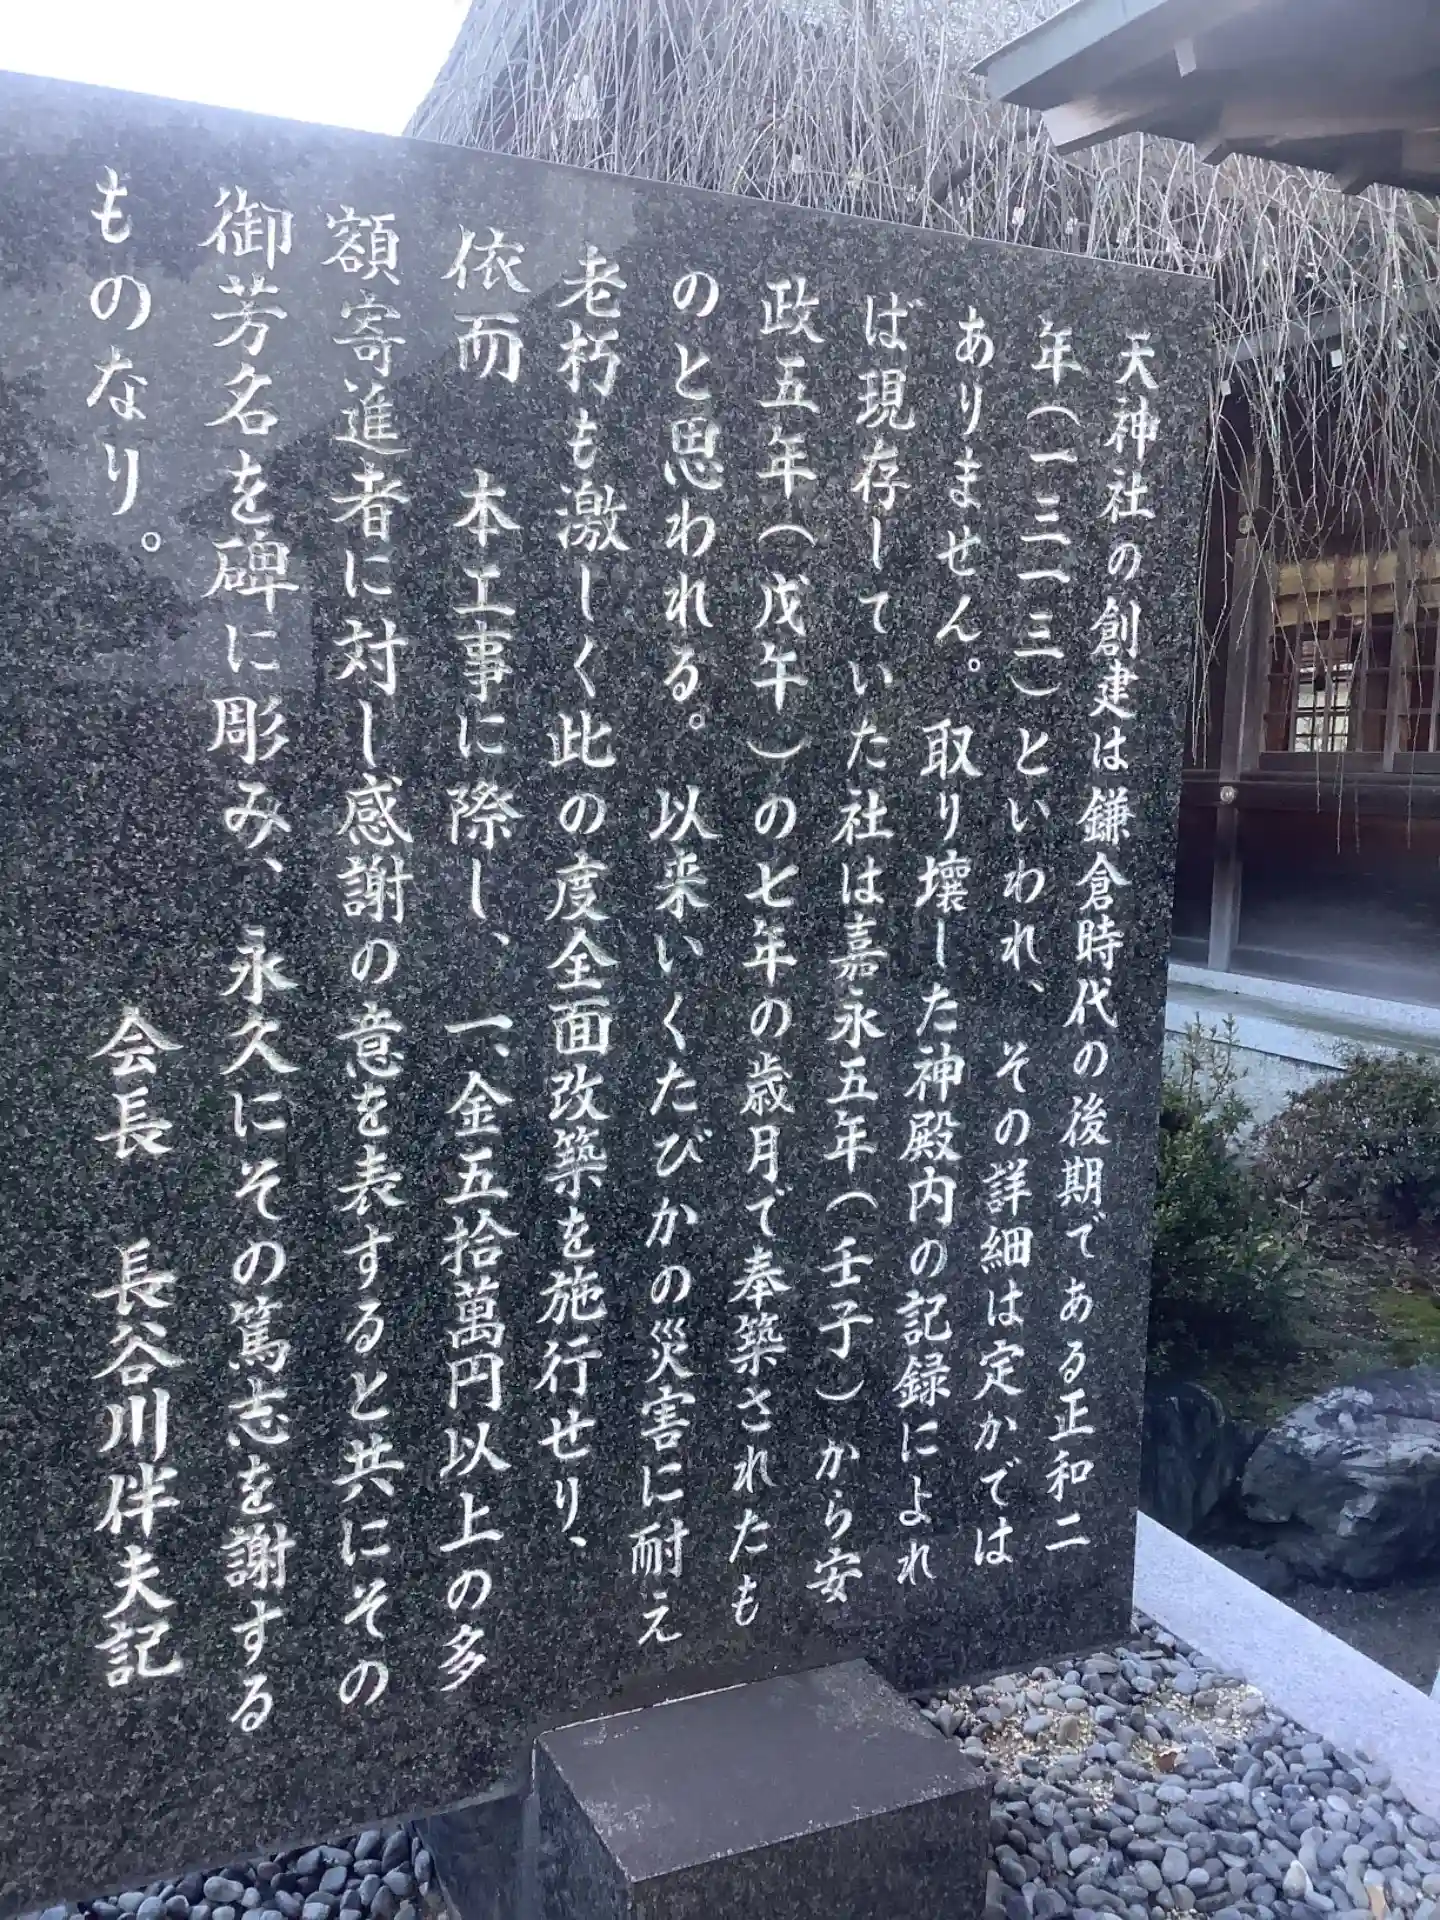 天神社の創建は鎌倉時代の後期である正和二
年（一三一三）といわれ、その詳細は定かでは
ありません。取り壊した神殿内の記録によれ
ば現存していた社は嘉永五年（壬子）から安
政五年（戊午）の七年の歳月で奉築されたも
のと思われる。以来いくたびかの災害に耐え
老朽も激しく此の度全面改築を施行せり、
依而　本工事に際し、一、金五拾萬円以上の多
額寄進者に対し感謝の意を表すると共にその
御芳名を碑に彫み、永久にその篤志を謝する
ものなり。
会長　長谷川伴夫記